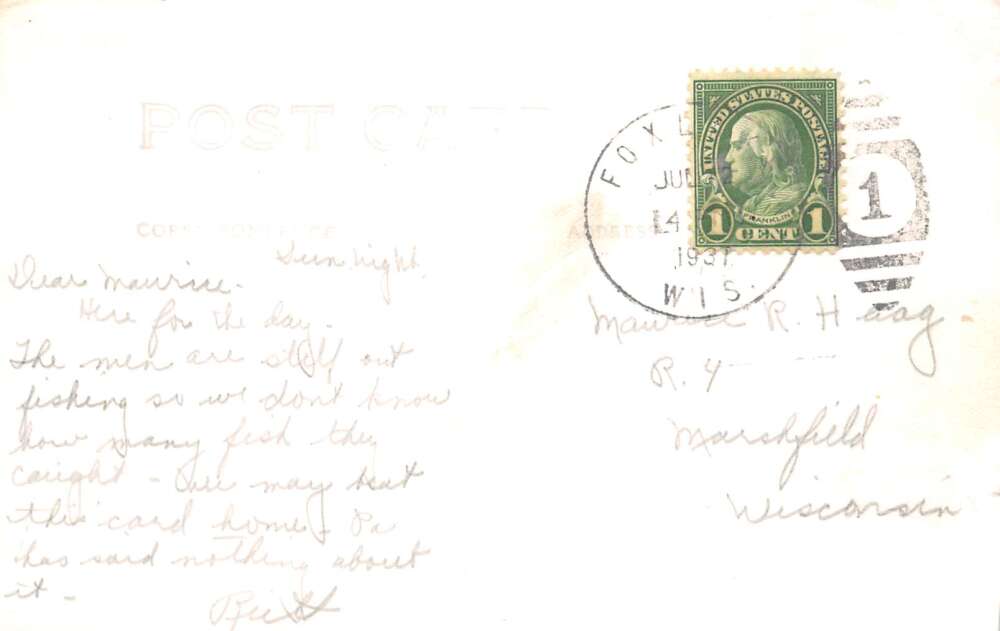 POST CARD
CORRESPONDENCE
ADDRESS
FOX L
JUL
14
1931
WIS.
UNITED STATES POSTAGE
FRANKLIN
1 CENT 1
1
Sun night.
Dear Maurice.
Here for the day.
The men are still out
fishing so we don't know
how many fish they
caught - We may beat
this card home. Pa
has said nothing about
it -
Maurice R. Haag -
R. 4
Marshfield
Wisconsin